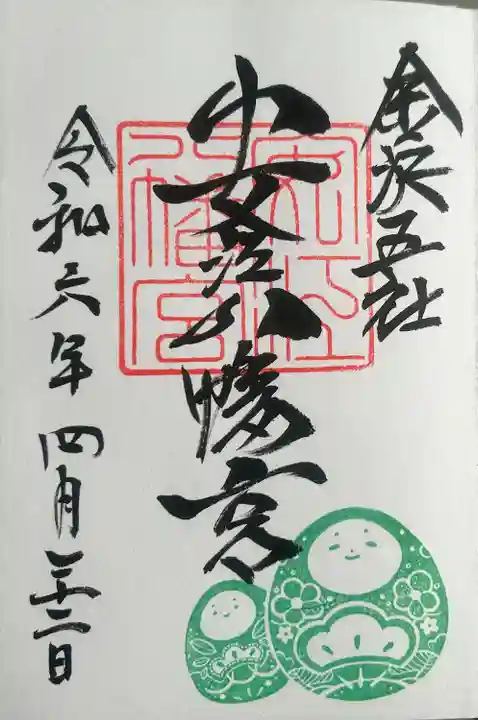 金沢五社
安江八幡宮
令和六年四月二十二日
安江
八幡宮